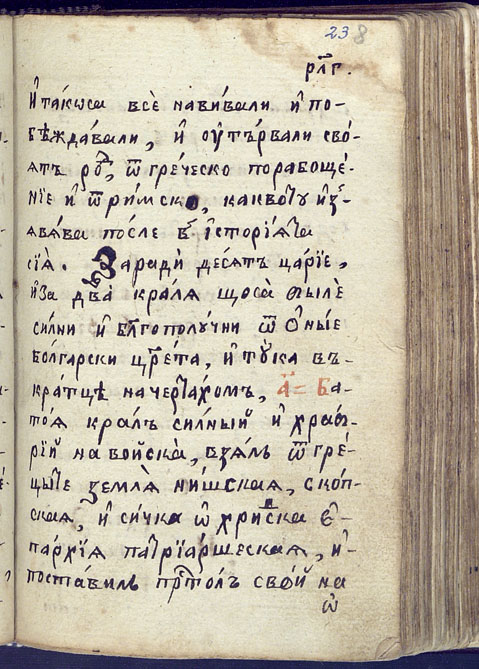 238
рл҃г.
И҆ такѡса всѐ навивали и҆ по-
бѣждавали, и҆ оу҆тървали сво-
ятъ ро́д, ѿ греческо порабоще-
нїе и҆ ѿ ри́мско, каквото и҆з-
явява после въ҆ исторїята
сїя. Заради̇̀ десять царїе,
и҆ за два̀ краля щоса былѐ
силни и҆ бл҃гополучни ѿ О҆ные
болгарски цр҃ета, и҆ тꙋка въ-
кратцѣ начертахомъ, а҃ = Ба-
тоя краль силный и҆ храб-
рїй на войска̀, взялъ ѿ гре-
цыте земля̀ нишская, скоп-
ская, и҆ сичка ѡ҆хридска е҆-
пархїя патрїаршеская, и҆-
поставилъ прⷭ҇толъ свой на
ѡ҆